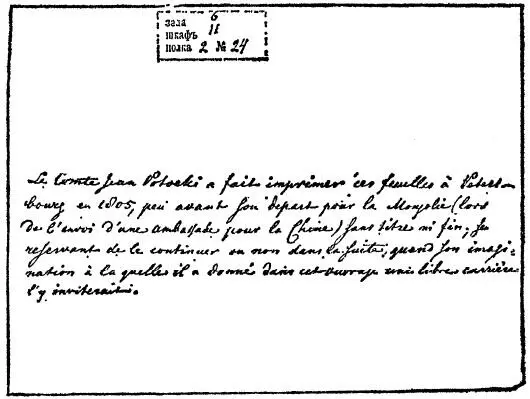 зала 6
шкафъ 11
полка 2 № 24
Le Comte Jean Potocki a fait imprimer ces feuilles à Peters-
bourg en 1805, peu avant son depart pour la Mongolie (lors
de l'envoi d'une ambassade pour la Chine) sans titre ni fin, se
reservant de le continuer ou non dans la suite, quand son imagi-
nation à la quelle il a donné dans cet ouvrage une libre carrière
l'y inviterait.